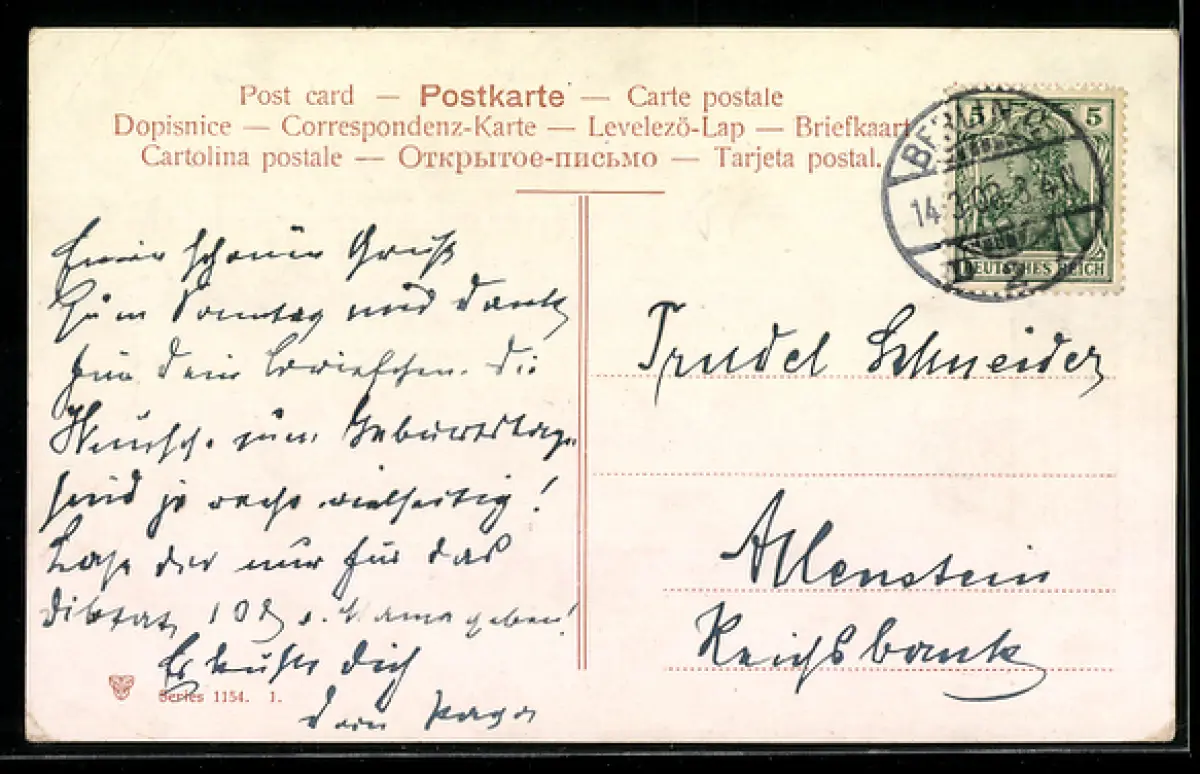 Post card — Postkarte — Carte postale
Dopisnice — Correspondenz-Karte — Levelező-Lap — Briefkaart
Cartolina postale — Открытое-письмо — Tarjeta postal.
BERLIN
14.3.06
5
DEUTSCHES REICH
schönen Gruß
zum Sonntag und Dank
für dein Briefchen. Die
Wünsche zum Geburtstage
sind ja recht vielseitig!
Laß dir nur für das
Diktat 10 Pf v. Mama geben!
Es küßt dich
dein Papa
Trudel Schneider
Allenstein
Reichsbank
Series 1154. 1.